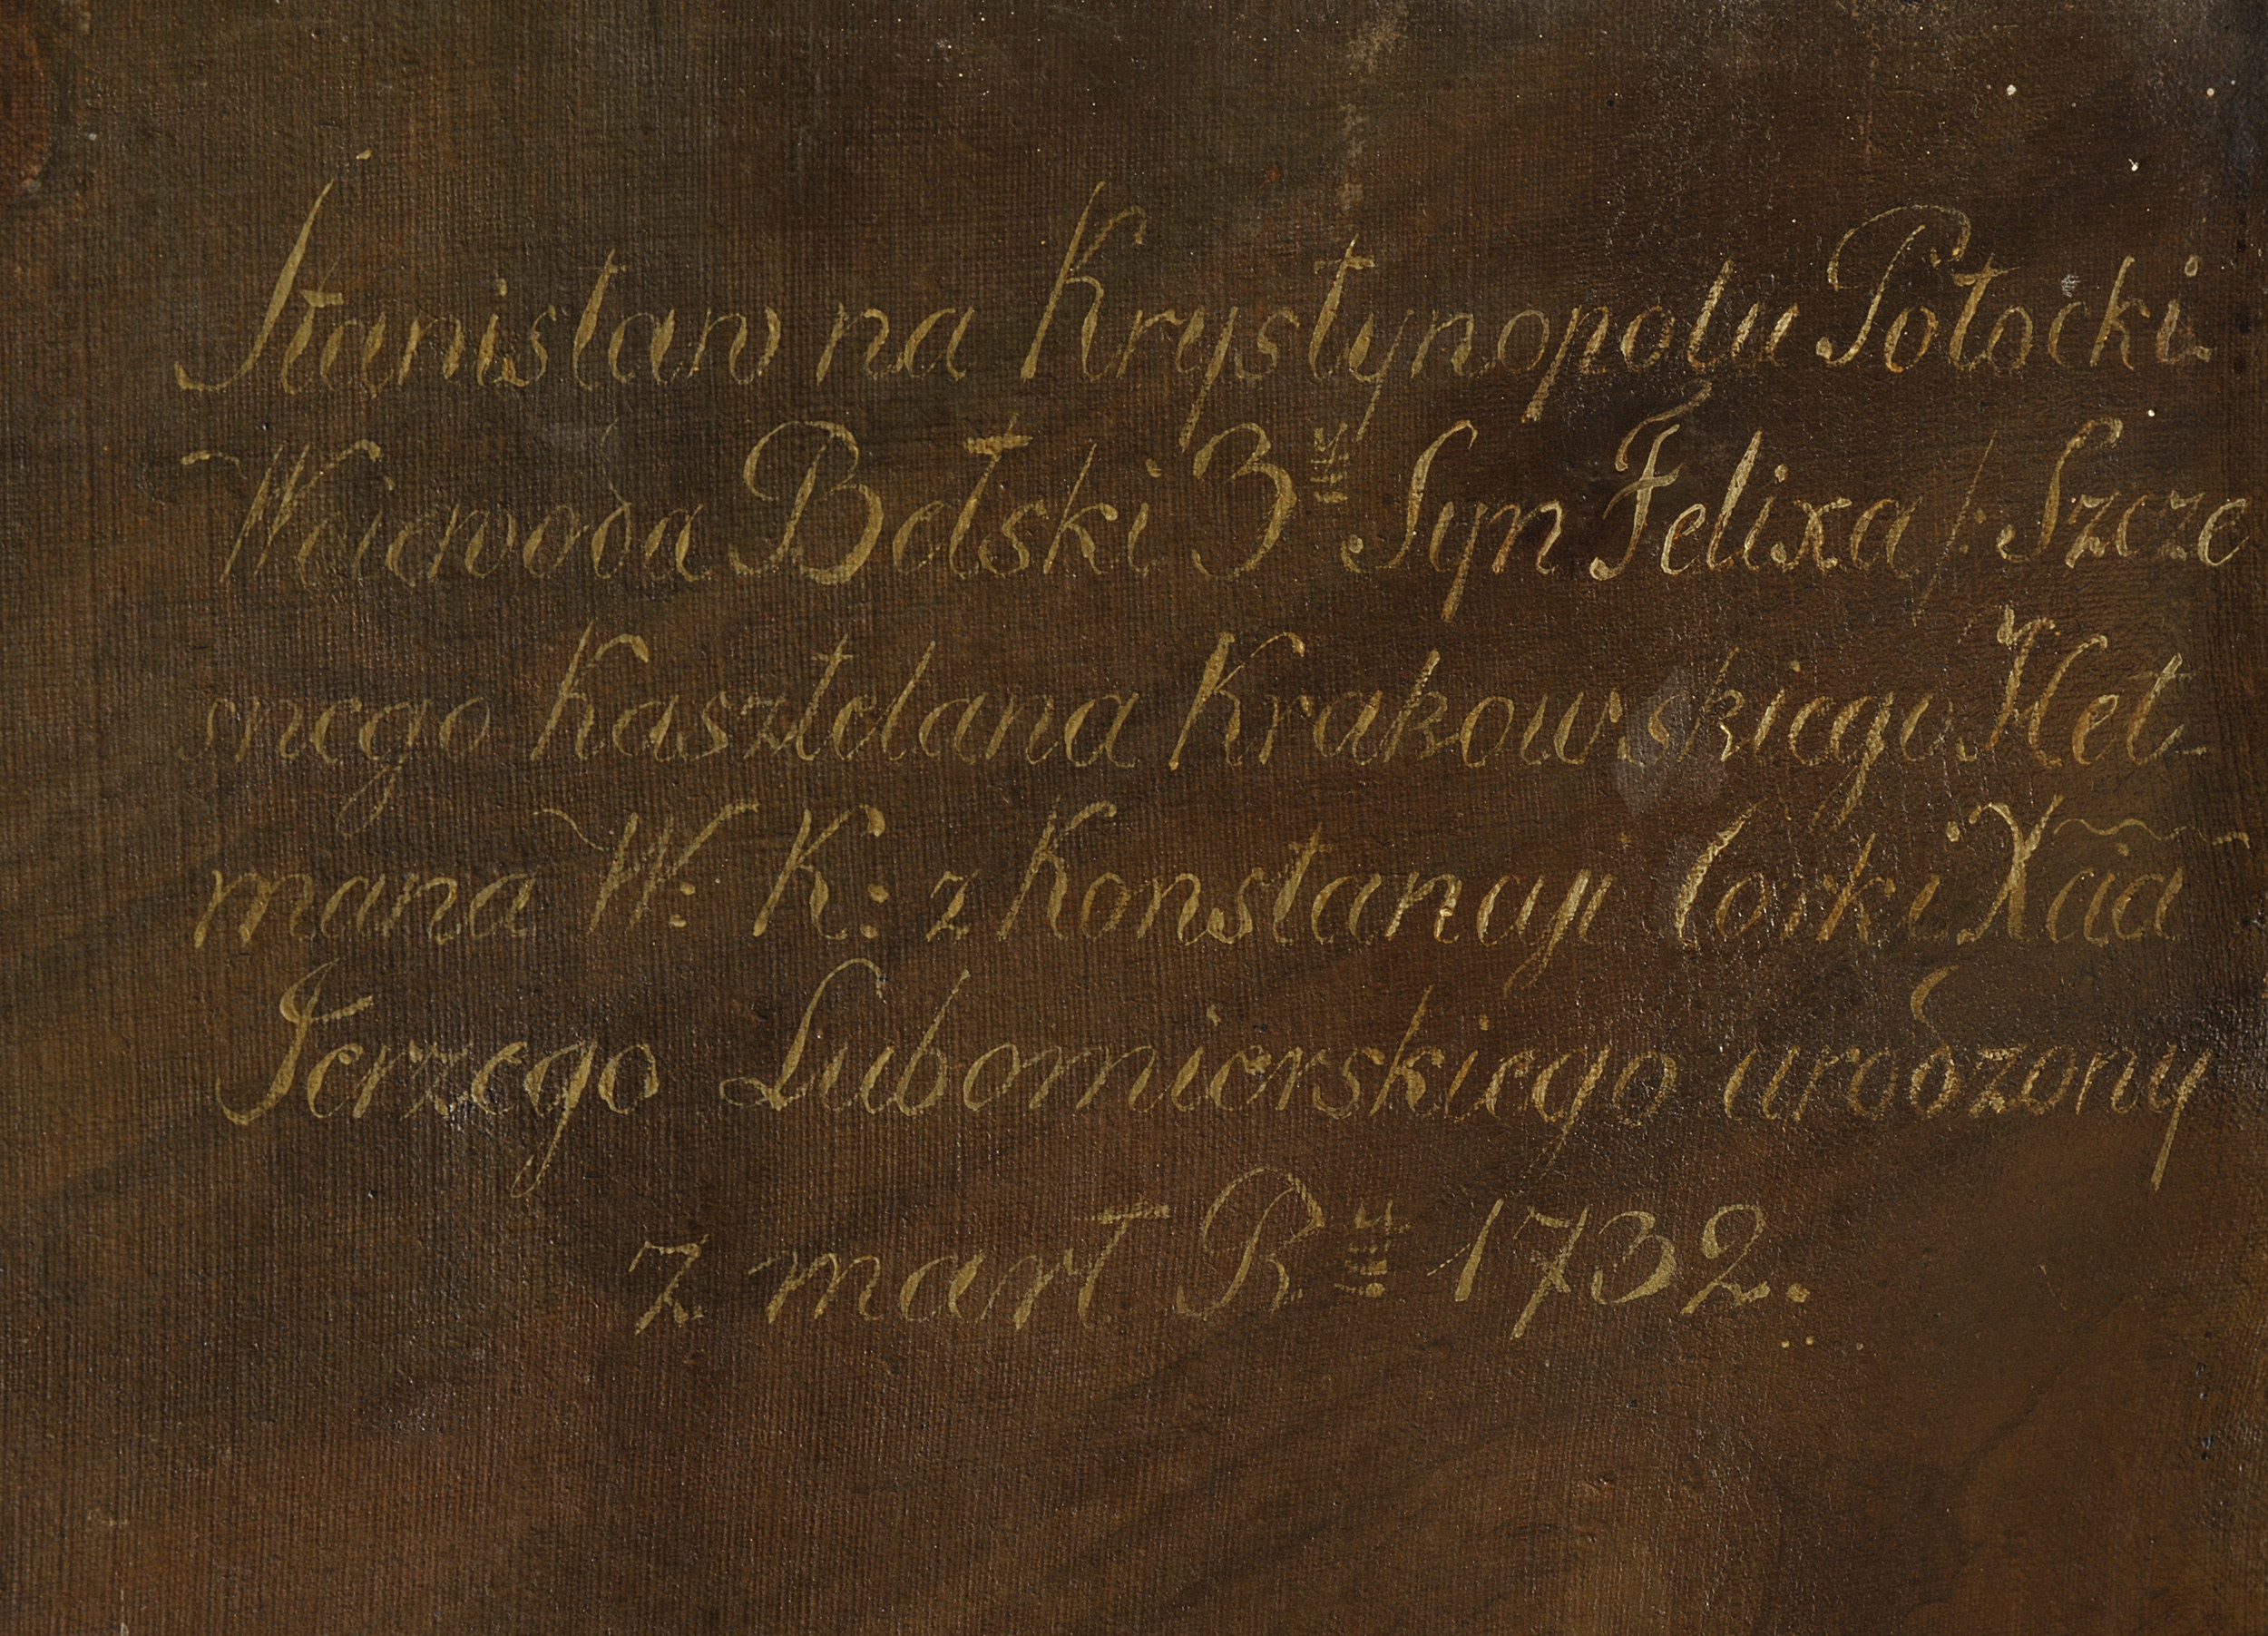 Stanisław na Krystynopolu Potocki
Woiewoda Bełski 3ci Syn Felixa /: Szcze
snego Kasztelana Krakowskiego Het-
mana W: K: z Konstancyi Corki Xcia
Jerzego Lubomierskiego urodzony
Zmart Ru 1732.